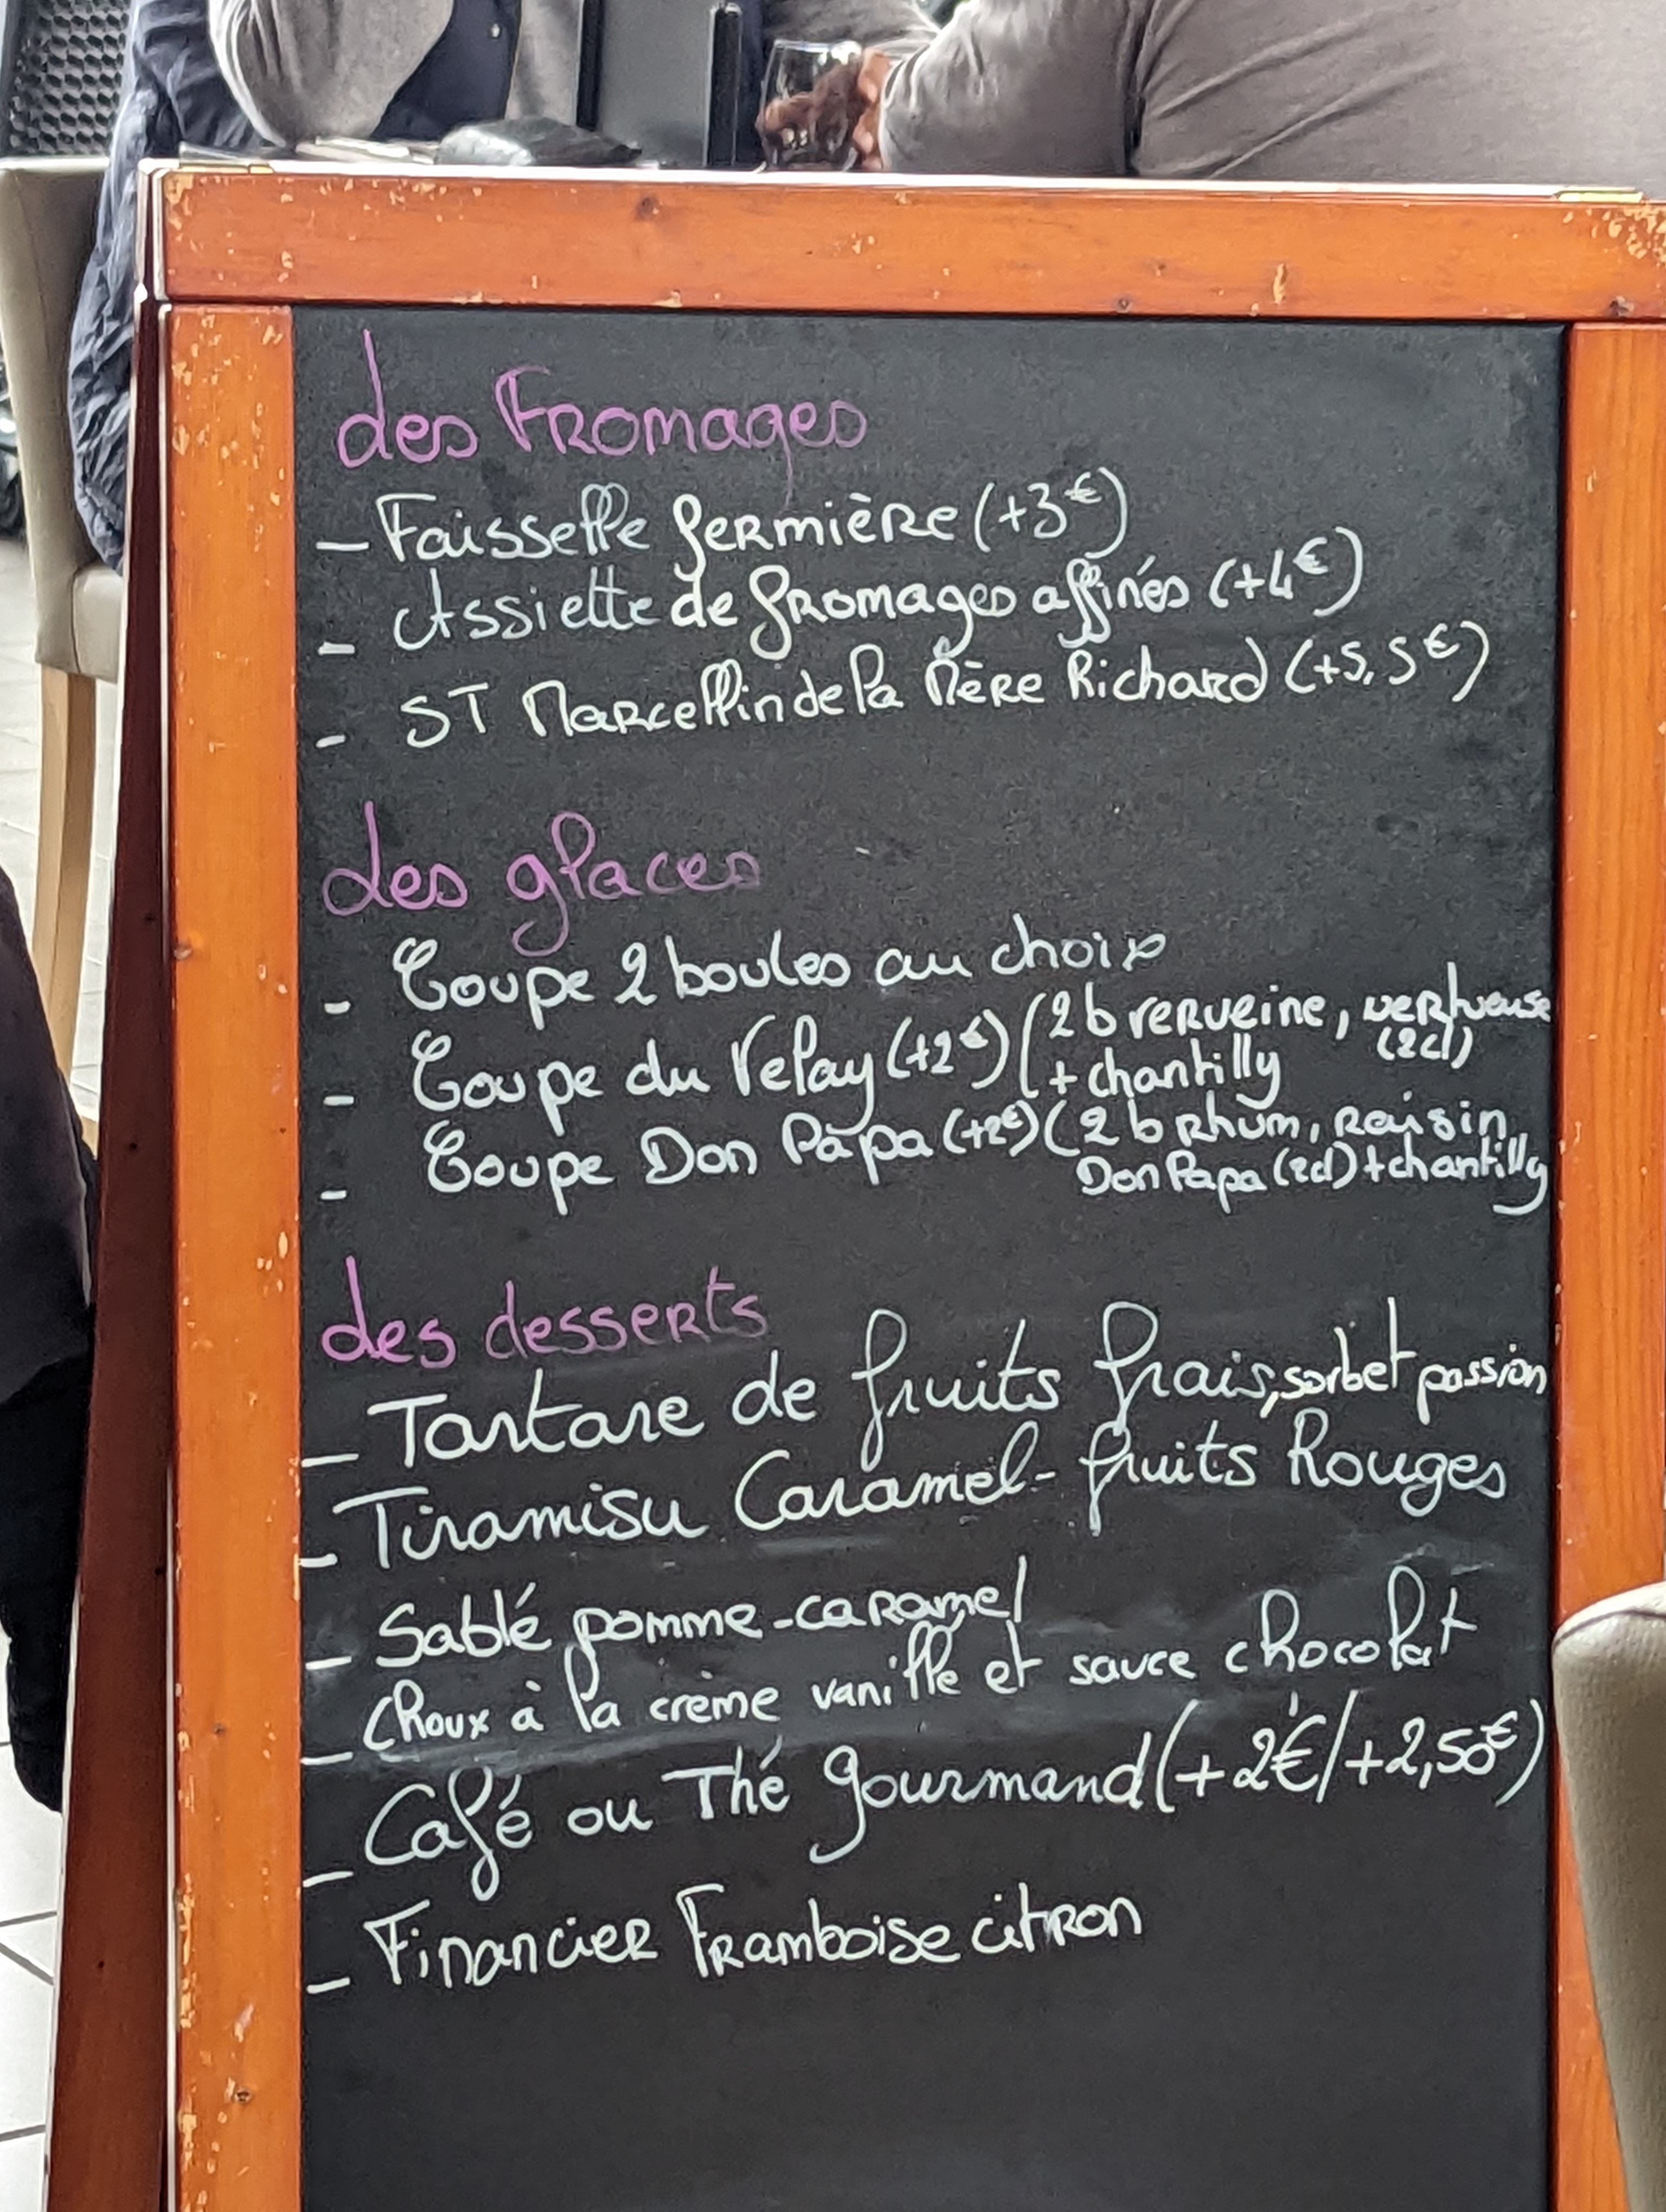 des Fromages
- Faisselle fermière (+3€)
- Assiette de fromages affinés (+4€)
- ST Marcellin de la Mère Richard (+5,5€)
des glaces
- Coupe 2 boules au choix
- Coupe du Velay (+2€) (2 b verveine, vertueuse (2cl)
+ chantilly
- Coupe Don Papa (+2€) (2 b rhum, raisin,
Don Papa (2cl) + chantilly
des desserts
- Tartare de fruits frais, sorbet passion
- Tiramisu Caramel - fruits Rouges
- Sablé pomme-caramel
- Choux à la crème vanille et sauce chocolat
- Café ou Thé gourmand (+2€/+2,50€)
- Financier Framboise citron